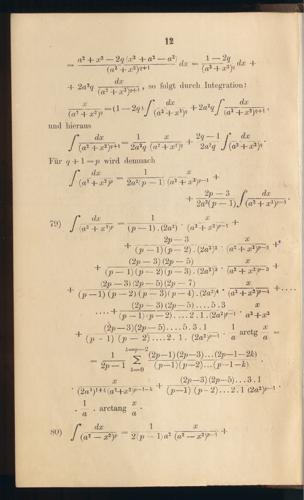 12
= \frac{a^2 + x^2 - 2q(x^2 + a^2 - a^2)}{(a^2 + x^2)^{q+1}} dx = \frac{1-2q}{(a^2+x^2)^q} dx +
+ 2a^2q \frac{dx}{(a^2+x^2)^{q+1}}, so folgt durch Integration:
\frac{x}{(a^2+x^2)^q} = (1-2q) \int \frac{dx}{(a^2+x^2)^q} + 2a^2q \int \frac{dx}{(a^2+x^2)^{q+1}},
und hieraus
\int \frac{dx}{(a^2+x^2)^{q+1}} = \frac{1}{2a^2q} \frac{x}{(a^2+x^2)^q} + \frac{2q-1}{2a^2q} \int \frac{dx}{(a^2+x^2)^q}.
Für q + 1 = p wird demnach
\int \frac{dx}{(a^2+x^2)^p} = \frac{1}{2a^2(p-1)} \frac{x}{(a^2+x^2)^{p-1}} +
+ \frac{2p-3}{2a^2(p-1)} \int \frac{dx}{(a^2+x^2)^{p-1}}.
79) \int \frac{dx}{(a^2+x^2)^p} = \frac{1}{(p-1).(2a^2)} \cdot \frac{x}{(a^2+x^2)^{p-1}} +
+ \frac{2p-3}{(p-1)(p-2).(2a^2)^2} \cdot \frac{x}{(a^2+x^2)^{p-2}} +
+ \frac{(2p-3)(2p-5)}{(p-1)(p-2)(p-3).(2a^2)^3} \cdot \frac{x}{(a^2+x^2)^{p-3}} +
+ \frac{(2p-3)(2p-5)(2p-7)}{(p-1)(p-2)(p-3)(p-4).(2a^2)^4} \cdot \frac{x}{(a^2+x^2)^{p-4}} + ....
....+ \frac{(2p-3)(2p-5)....5.3}{(p-1)(p-2)....2.1.(2a^2)^{p-1}} \cdot \frac{x}{a^2+x^2}
+ \frac{(2p-3)(2p-5)....5.3.1}{(p-1)(p-2)....2.1.(2a^2)^{p-1}} \cdot \frac{1}{a} arctg \frac{x}{a} =
= \frac{1}{2p-1} \sum_{k=0}^{k=p-2} \frac{(2p-1)(2p-3)...(2p-1-2k)}{(p-1)(p-2)...(p-1-k)} \cdot
\cdot \frac{x}{(2a^2)^{k+1}(a^2+x^2)^{p-1-k}} + \frac{(2p-3)(2p-5)...3.1}{(p-1)(p-2)...2.1.(2a^2)^{p-1}} \cdot
\cdot \frac{1}{a} \cdot arctang \frac{x}{a}.
80) \int \frac{dx}{(a^2-x^2)^p} = \frac{1}{2(p-1)a^2} \frac{x}{(a^2-x^2)^{p-1}} +